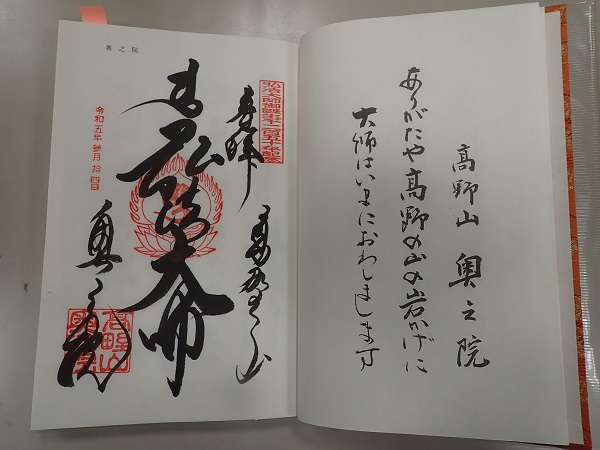 高野山 奥之院
ありがたや高野の山の岩かげに
大師はいまにおわしまします
奥之院
弘法大師御誕生千二百五十年記念
奉拝
高野山
弘法大師
奥之院
令和五年参月拾四日